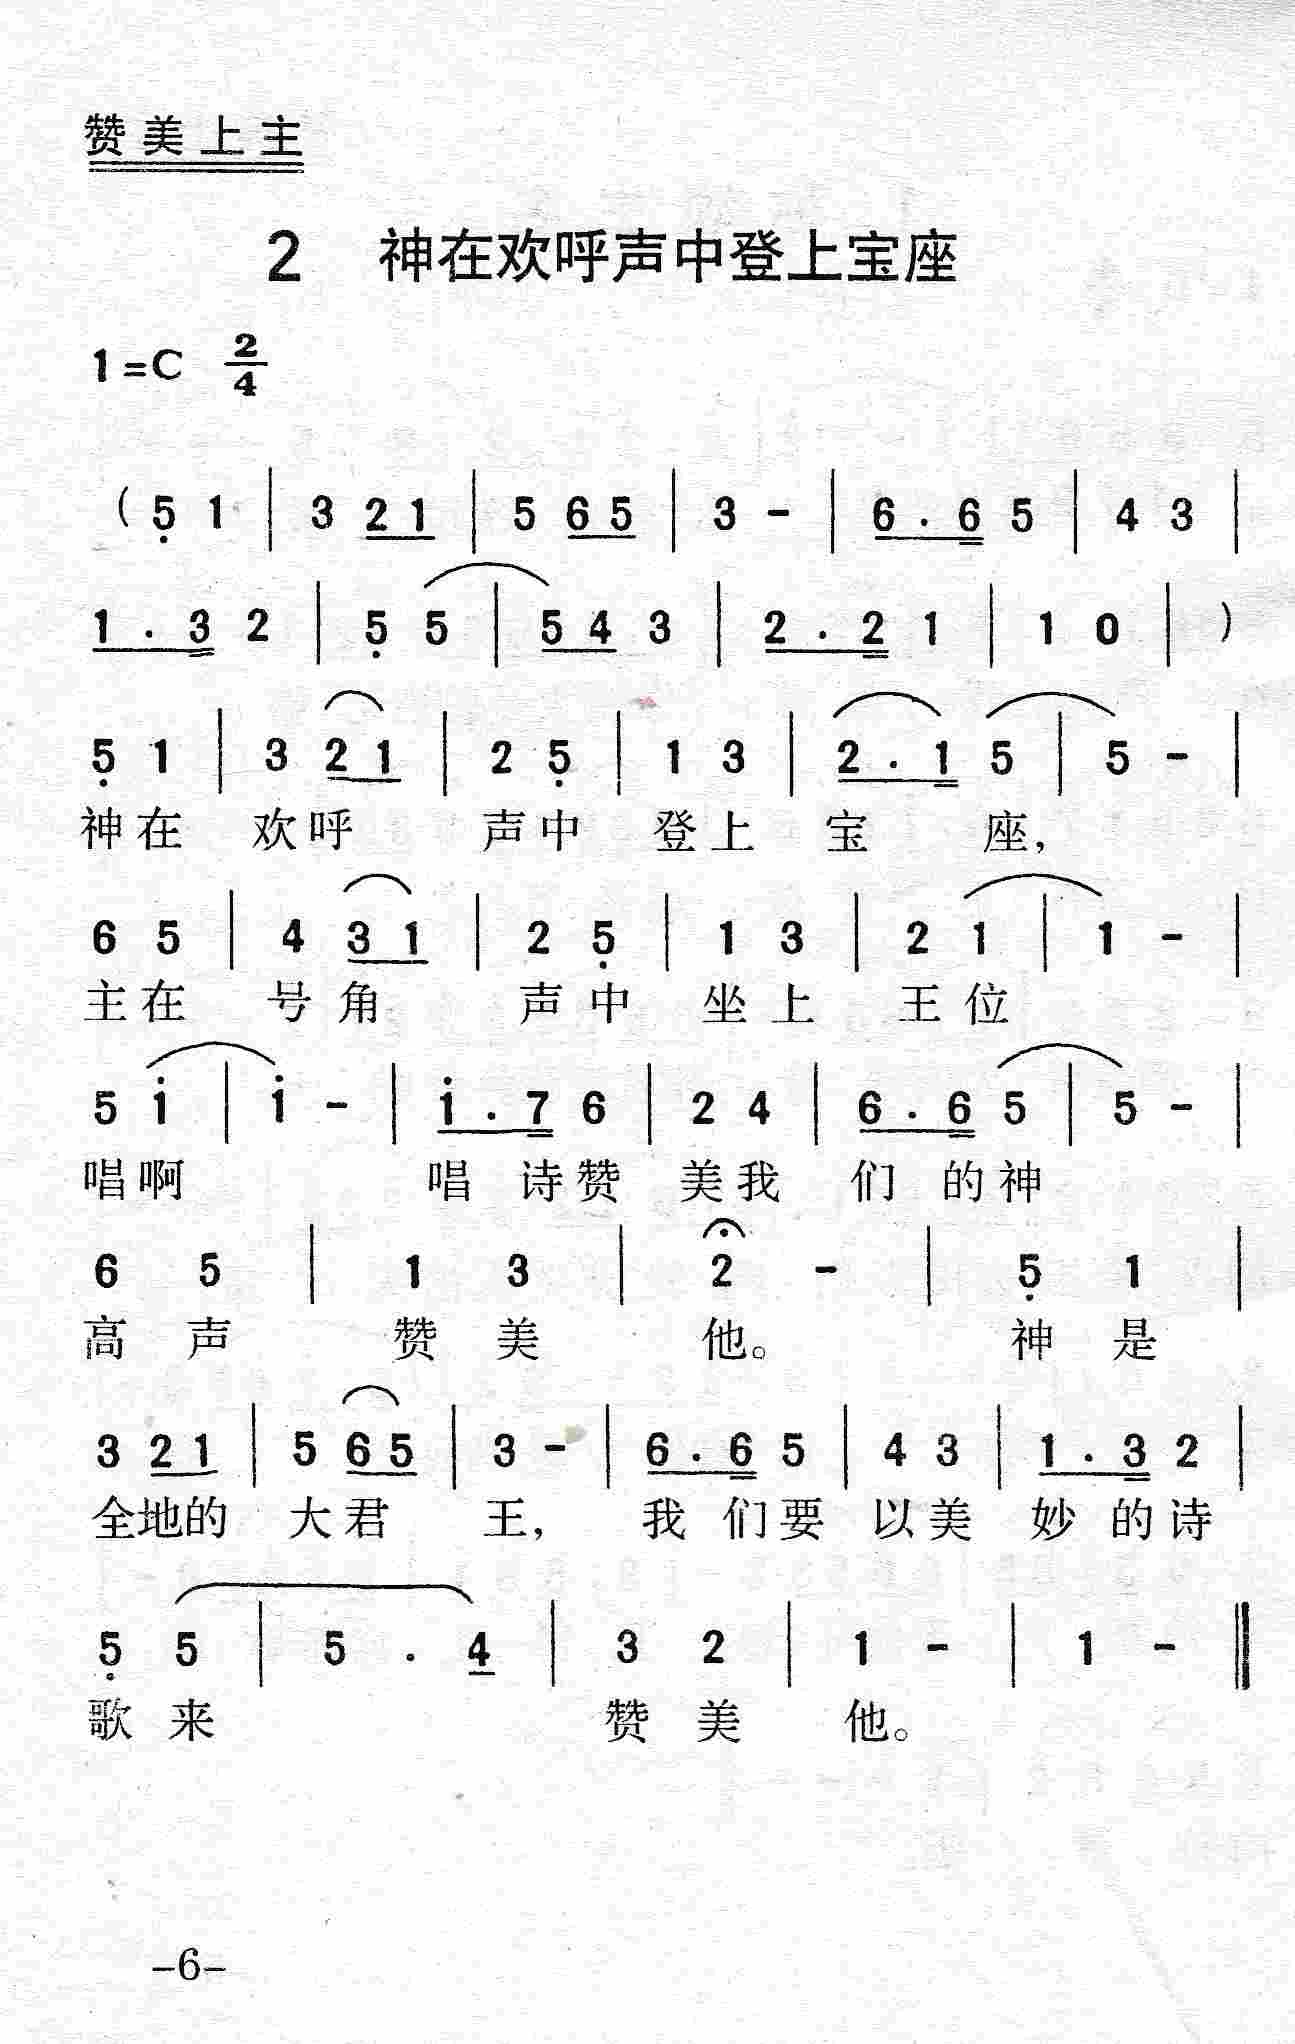 赞美上主
2 神在欢呼声中登上宝座
1=C 2/4
( 5̣ 1 | 3 2 1 | 5 6 5 | 3 - | 6 . 6 5 | 4 3 |
1 . 3 2 | 5̣ 5 | 5 4 3 | 2 . 2 1 | 1 0 | )
5̣ 1 | 3 2 1 | 2 5̣ | 1 3 | 2 . 1 5 | 5 - |
神在 欢呼 声中 登上 宝 座,
6 5 | 4 3 1 | 2 5̣ | 1 3 | 2 1 | 1 - |
主在 号角 声中 坐上 王位
5 1̇ | 1̇ - | 1̇ . 7 6 | 2 4 | 6 . 6 5 | 5 - |
唱啊 唱 诗赞 美我 们 的神
6 5 | 1 3 | 2 - | 5̣ 1 |
高 声 赞 美 他。 神 是
3 2 1 | 5 6 5 | 3 - | 6 . 6 5 | 4 3 | 1 . 3 2 |
全地的 大君 王, 我 们要 以美 妙 的诗
5̣ 5 | 5 . 4 | 3 2 | 1 - | 1 - ‖
歌 来 赞 美 他。
-6-